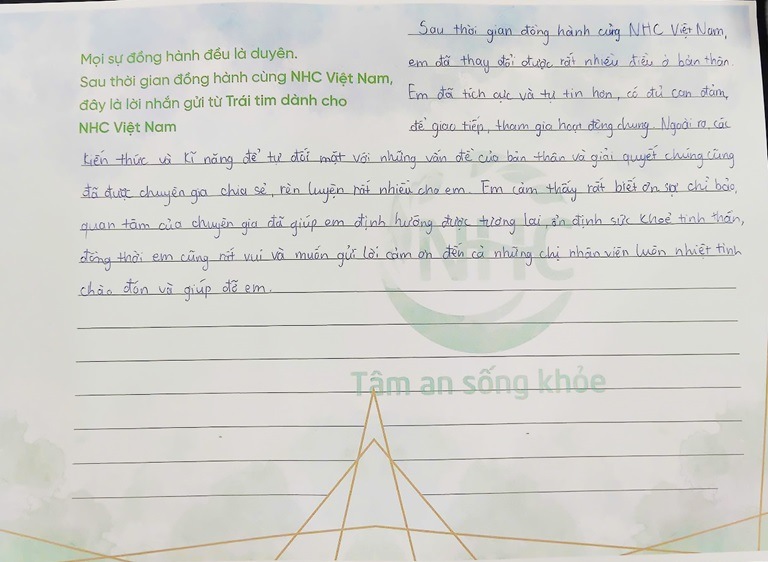 Mọi sự đồng hành đều là duyên.
Sau thời gian đồng hành cùng NHC Việt Nam,
đây là lời nhắn gửi từ Trái tim dành cho
NHC Việt Nam
Sau thời gian đồng hành cùng NHC Việt Nam,
em đã thay đổi được rất nhiều điều ở bản thân.
Em đã tích cực và tự tin hơn, có đủ can đảm,
để giao tiếp, tham gia hoạt động chung. Ngoài ra, các
kiến thức và kĩ năng để tự đối mặt với những vấn đề của bản thân và giải quyết chúng cũng
đã được chuyên gia chia sẻ, rèn luyện rất nhiều cho em. Em cảm thấy rất biết ơn sự chỉ bảo,
quan tâm của chuyên gia đã giúp em định hướng được tương lai, ổn định sức khoẻ tinh thần,
đồng thời em cũng rất vui và muốn gửi lời cảm ơn đến cả những chị nhân viên luôn nhiệt tình
chào đón và giúp đỡ em.
NHC
Tâm an sống khỏe